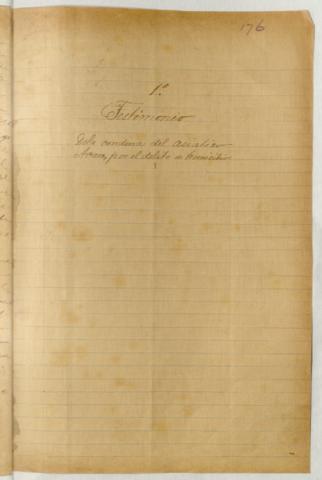 176
1º
Testimonio
Dela condena del asiatico
por el delito de homicidio